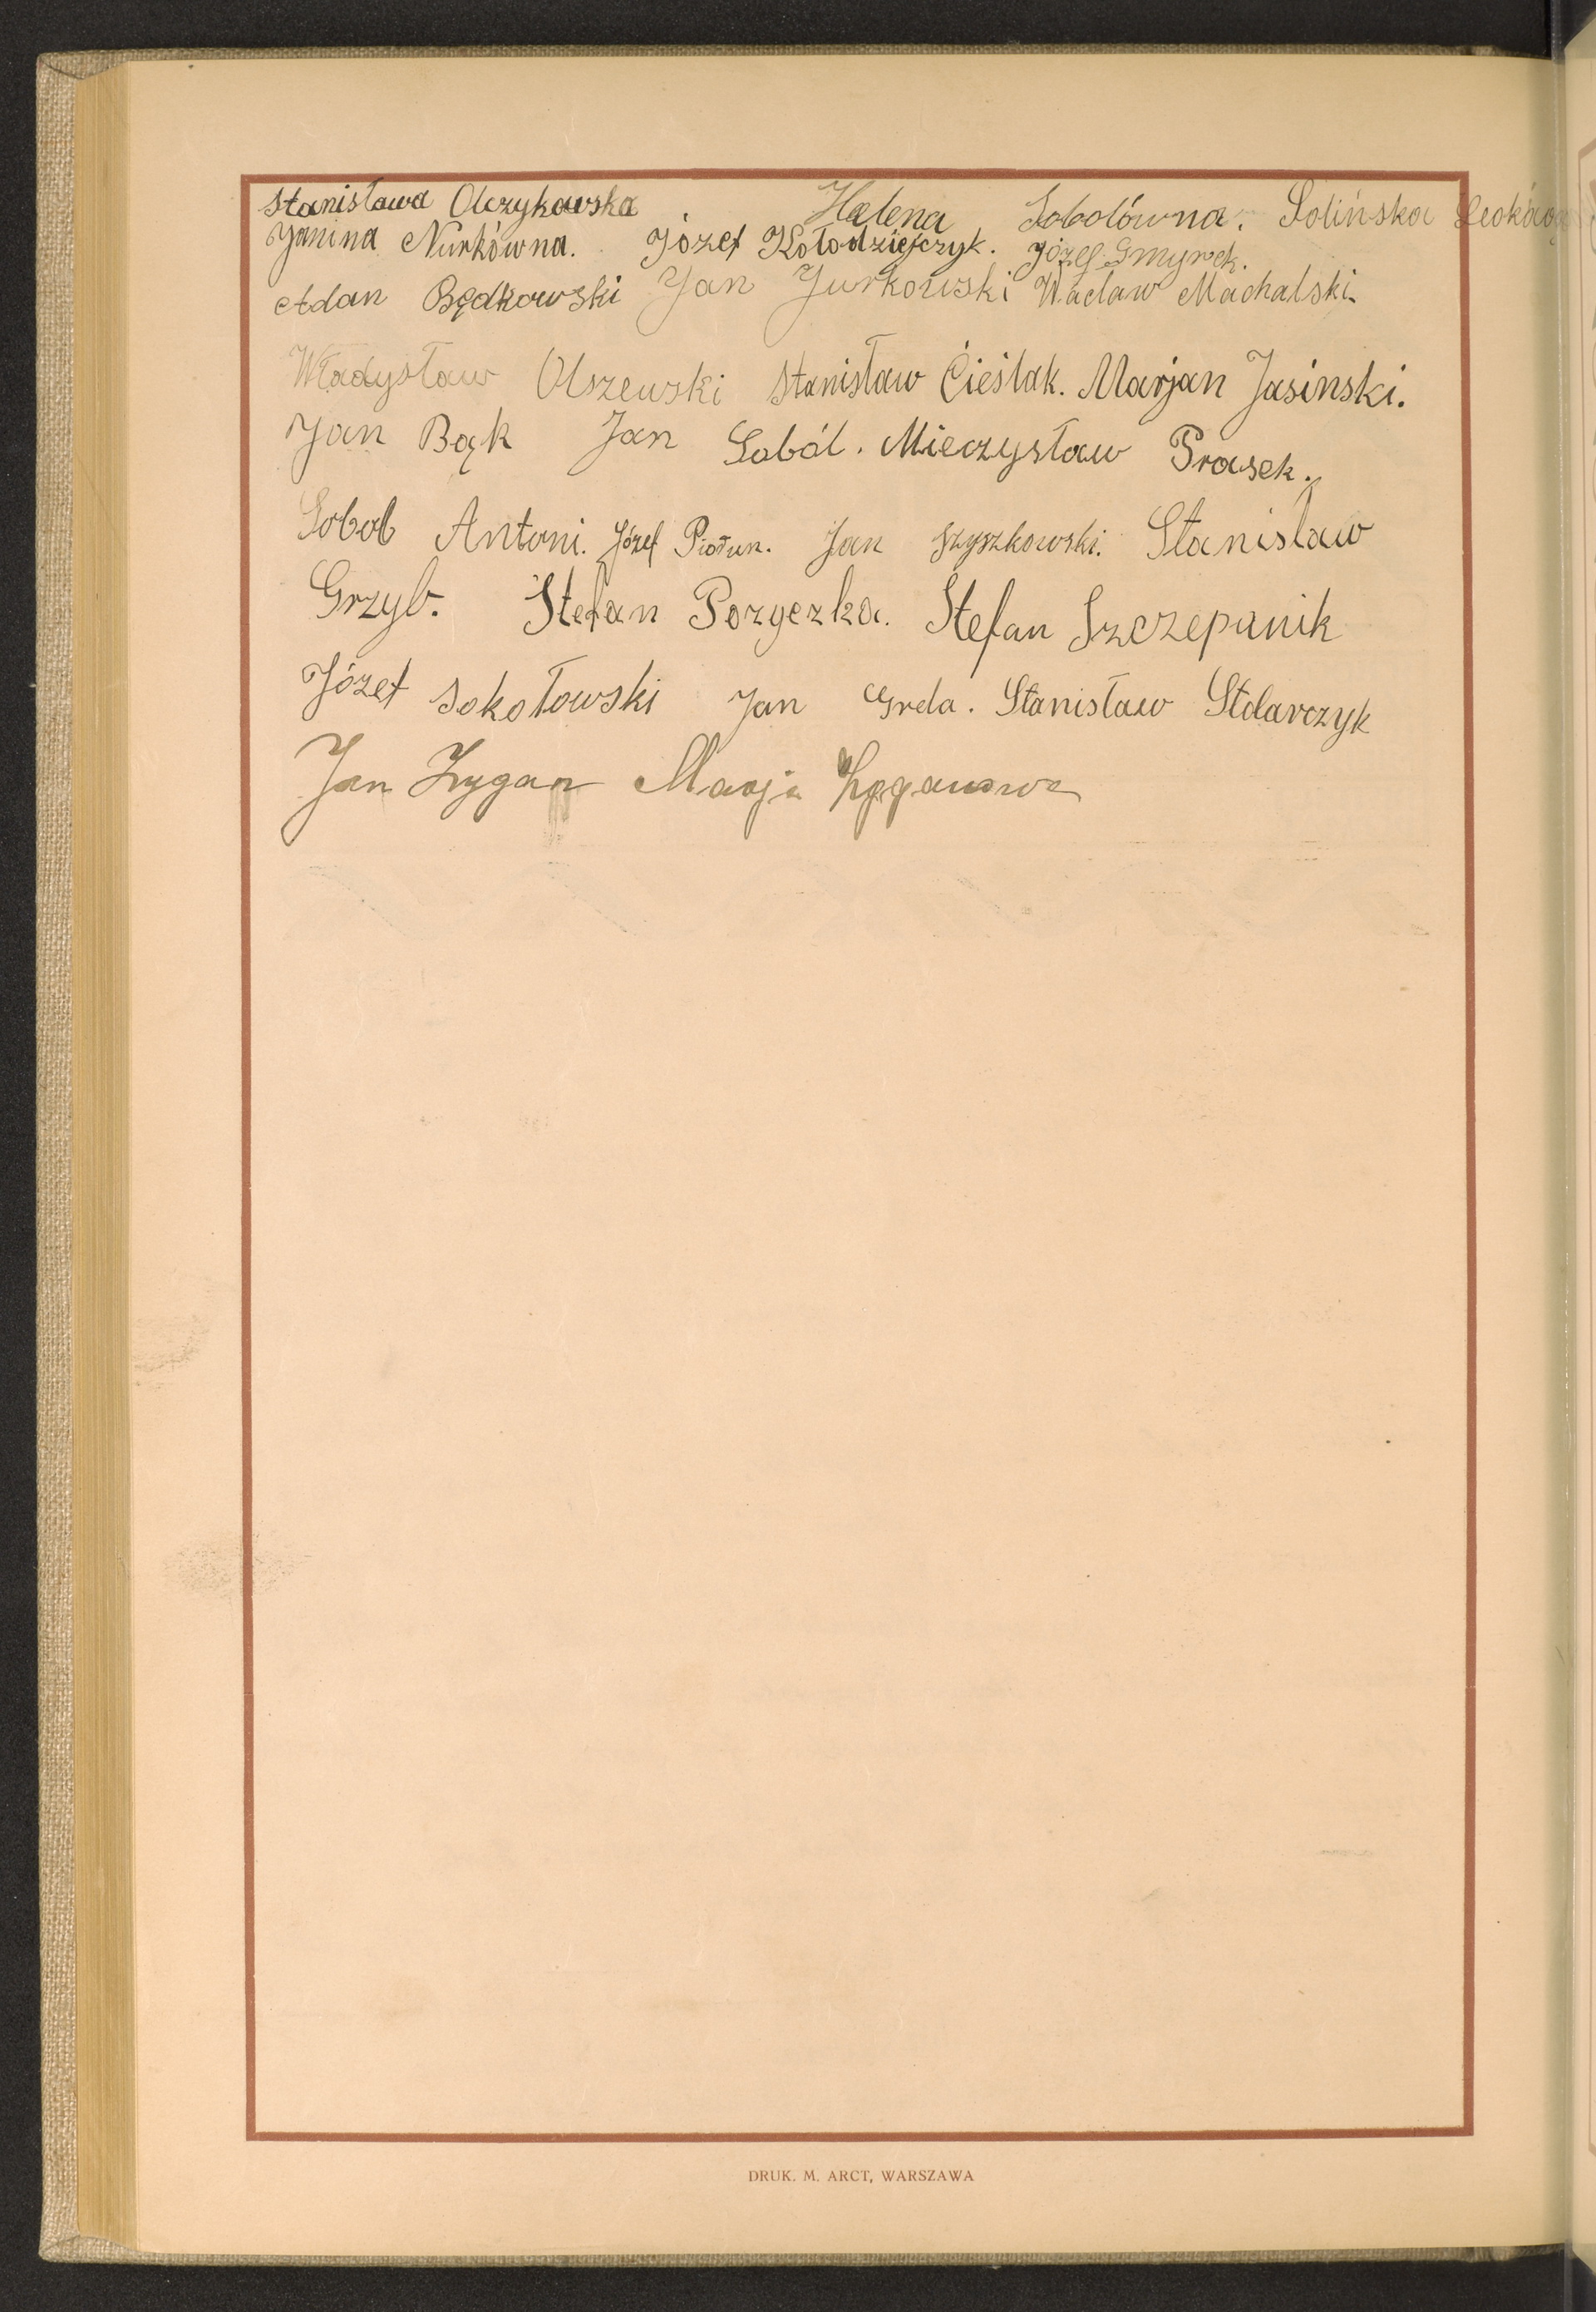 Stanisława Olczykowska Helena Sobolówna. Solińska
Janina Nurkówna. Józef Kołodziejczyk. Józef Gmyrek.
Adan Będkowski Jan Jurkowski Wacław Machalski.
Władysław Olszewski Stanisław Cieślak. Marjan Jasinski.
Jan Bąk Jan Soból. Mieczysław Prasek.
Sobol Antoni. Józef Piołun. Jan Szyszkowski. Stanisław
Grzyb. Stefan Pozyczka. Stefan Szczepanik
Józef Sokołowski Jan Grda. Stanisław Stolarczyk
Jan Zygan Marja
DRUK. M. ARCT, WARSZAWA